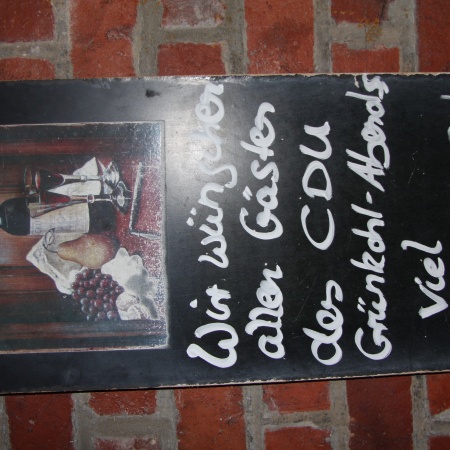 Wir wünschen
allen Gästen
des CDU
Grünkohl-Abends
Viel